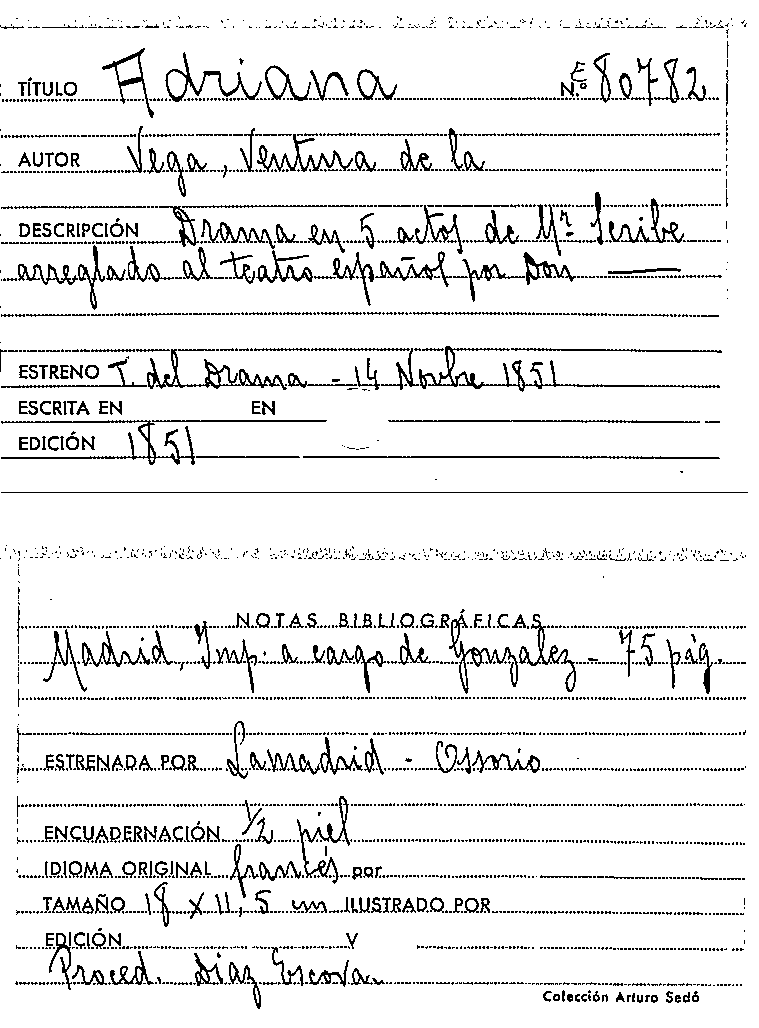 TÍTULO Adriana N.º E 80782
AUTOR Vega, Ventura de la
DESCRIPCIÓN Drama en 5 actos de Mr. Scribe
arreglado al teatro español por Don ———
ESTRENO T. del Drama - 14 Novbre 1851
ESCRITA EN EN
EDICIÓN 1851
NOTAS BIBLIOGRÁFICAS
Madrid, Imp. a cargo de Gonzalez - 75 pág.
ESTRENADA POR Lamadrid - Ossorio
ENCUADERNACIÓN 1/2 piel
IDIOMA ORIGINAL francés por
TAMAÑO 18 x 11,5 cm ILUSTRADO POR
EDICIÓN V
Proced. Diaz Escovar
Colección Arturo Sedó